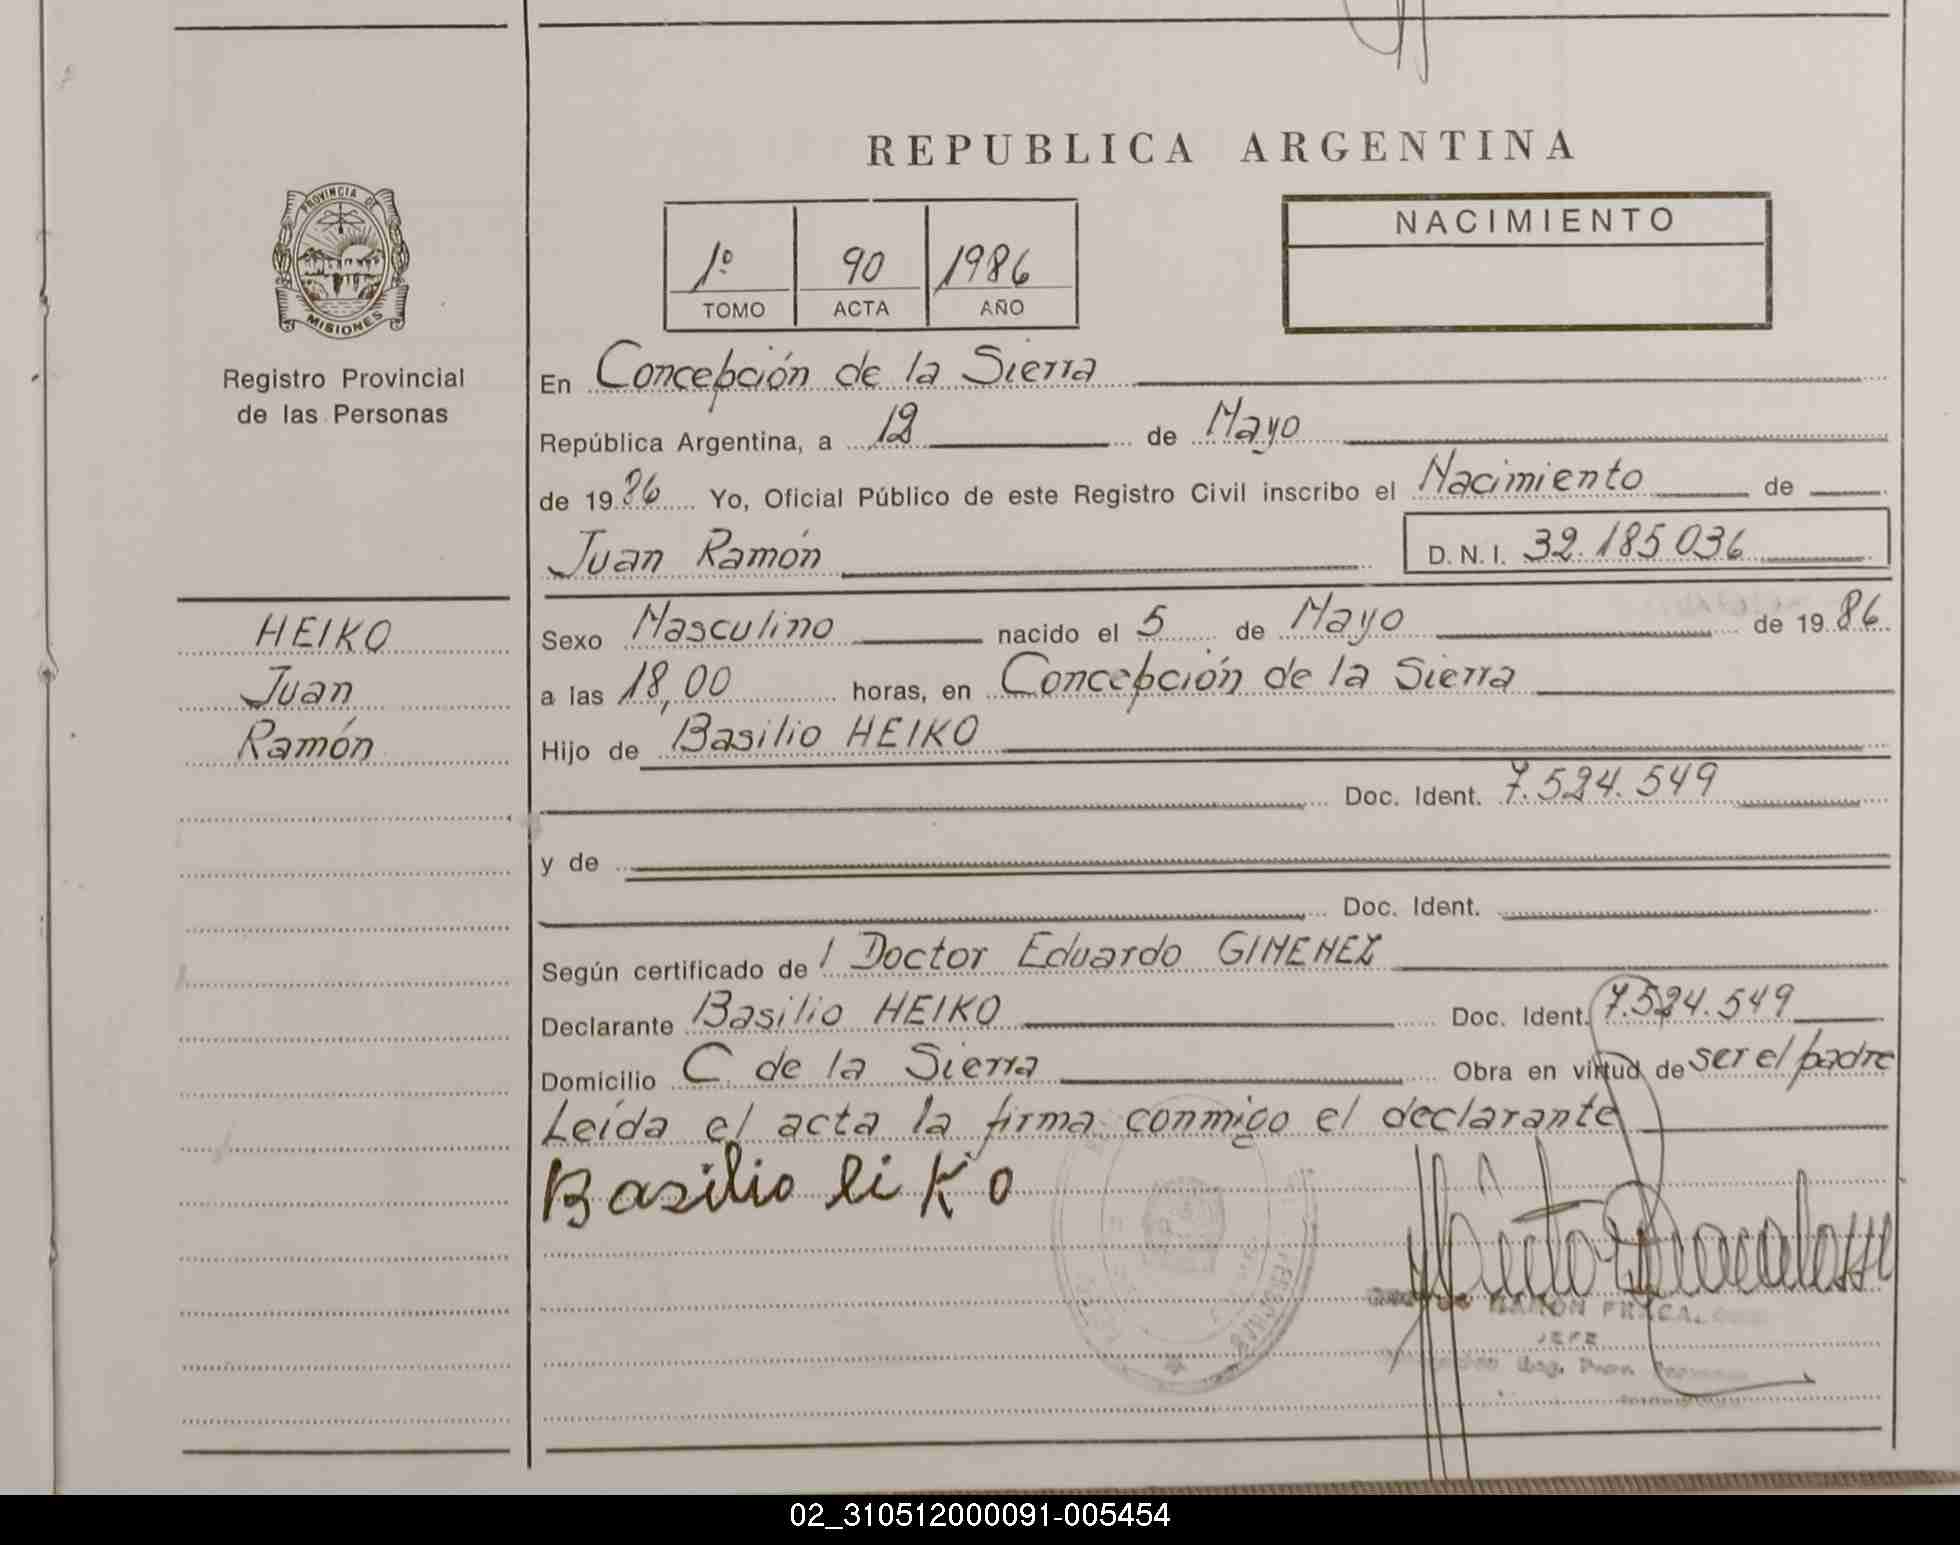 REPUBLICA ARGENTINA
PROVINCIA DE
MISIONES
Registro Provincial
de las Personas
1º 90 1986
TOMO ACTA AÑO
NACIMIENTO
En Concepción de la Sierra
República Argentina, a 12 de Mayo
de 1986 Yo, Oficial Público de este Registro Civil inscribo el Nacimiento de
Juan Ramón D.N.I. 32.185036
HEIKO
Juan
Ramón
Sexo Masculino nacido el 5 de Mayo de 1986
a las 18,00 horas, en Concepción de la Sierra
Hijo de Basilio HEIKO
Doc. Ident. 7.524.549
y de
Doc. Ident.
Según certificado de l Doctor Eduardo GIMENEZ
Declarante Basilio HEIKO Doc. Ident. 7.524.549
Domicilio C de la Sierra Obra en virtud de ser el padre
Leída el acta la firma conmigo el declarante
Basilio eiKo
RAMON
JEFE
02_310512000091-005454